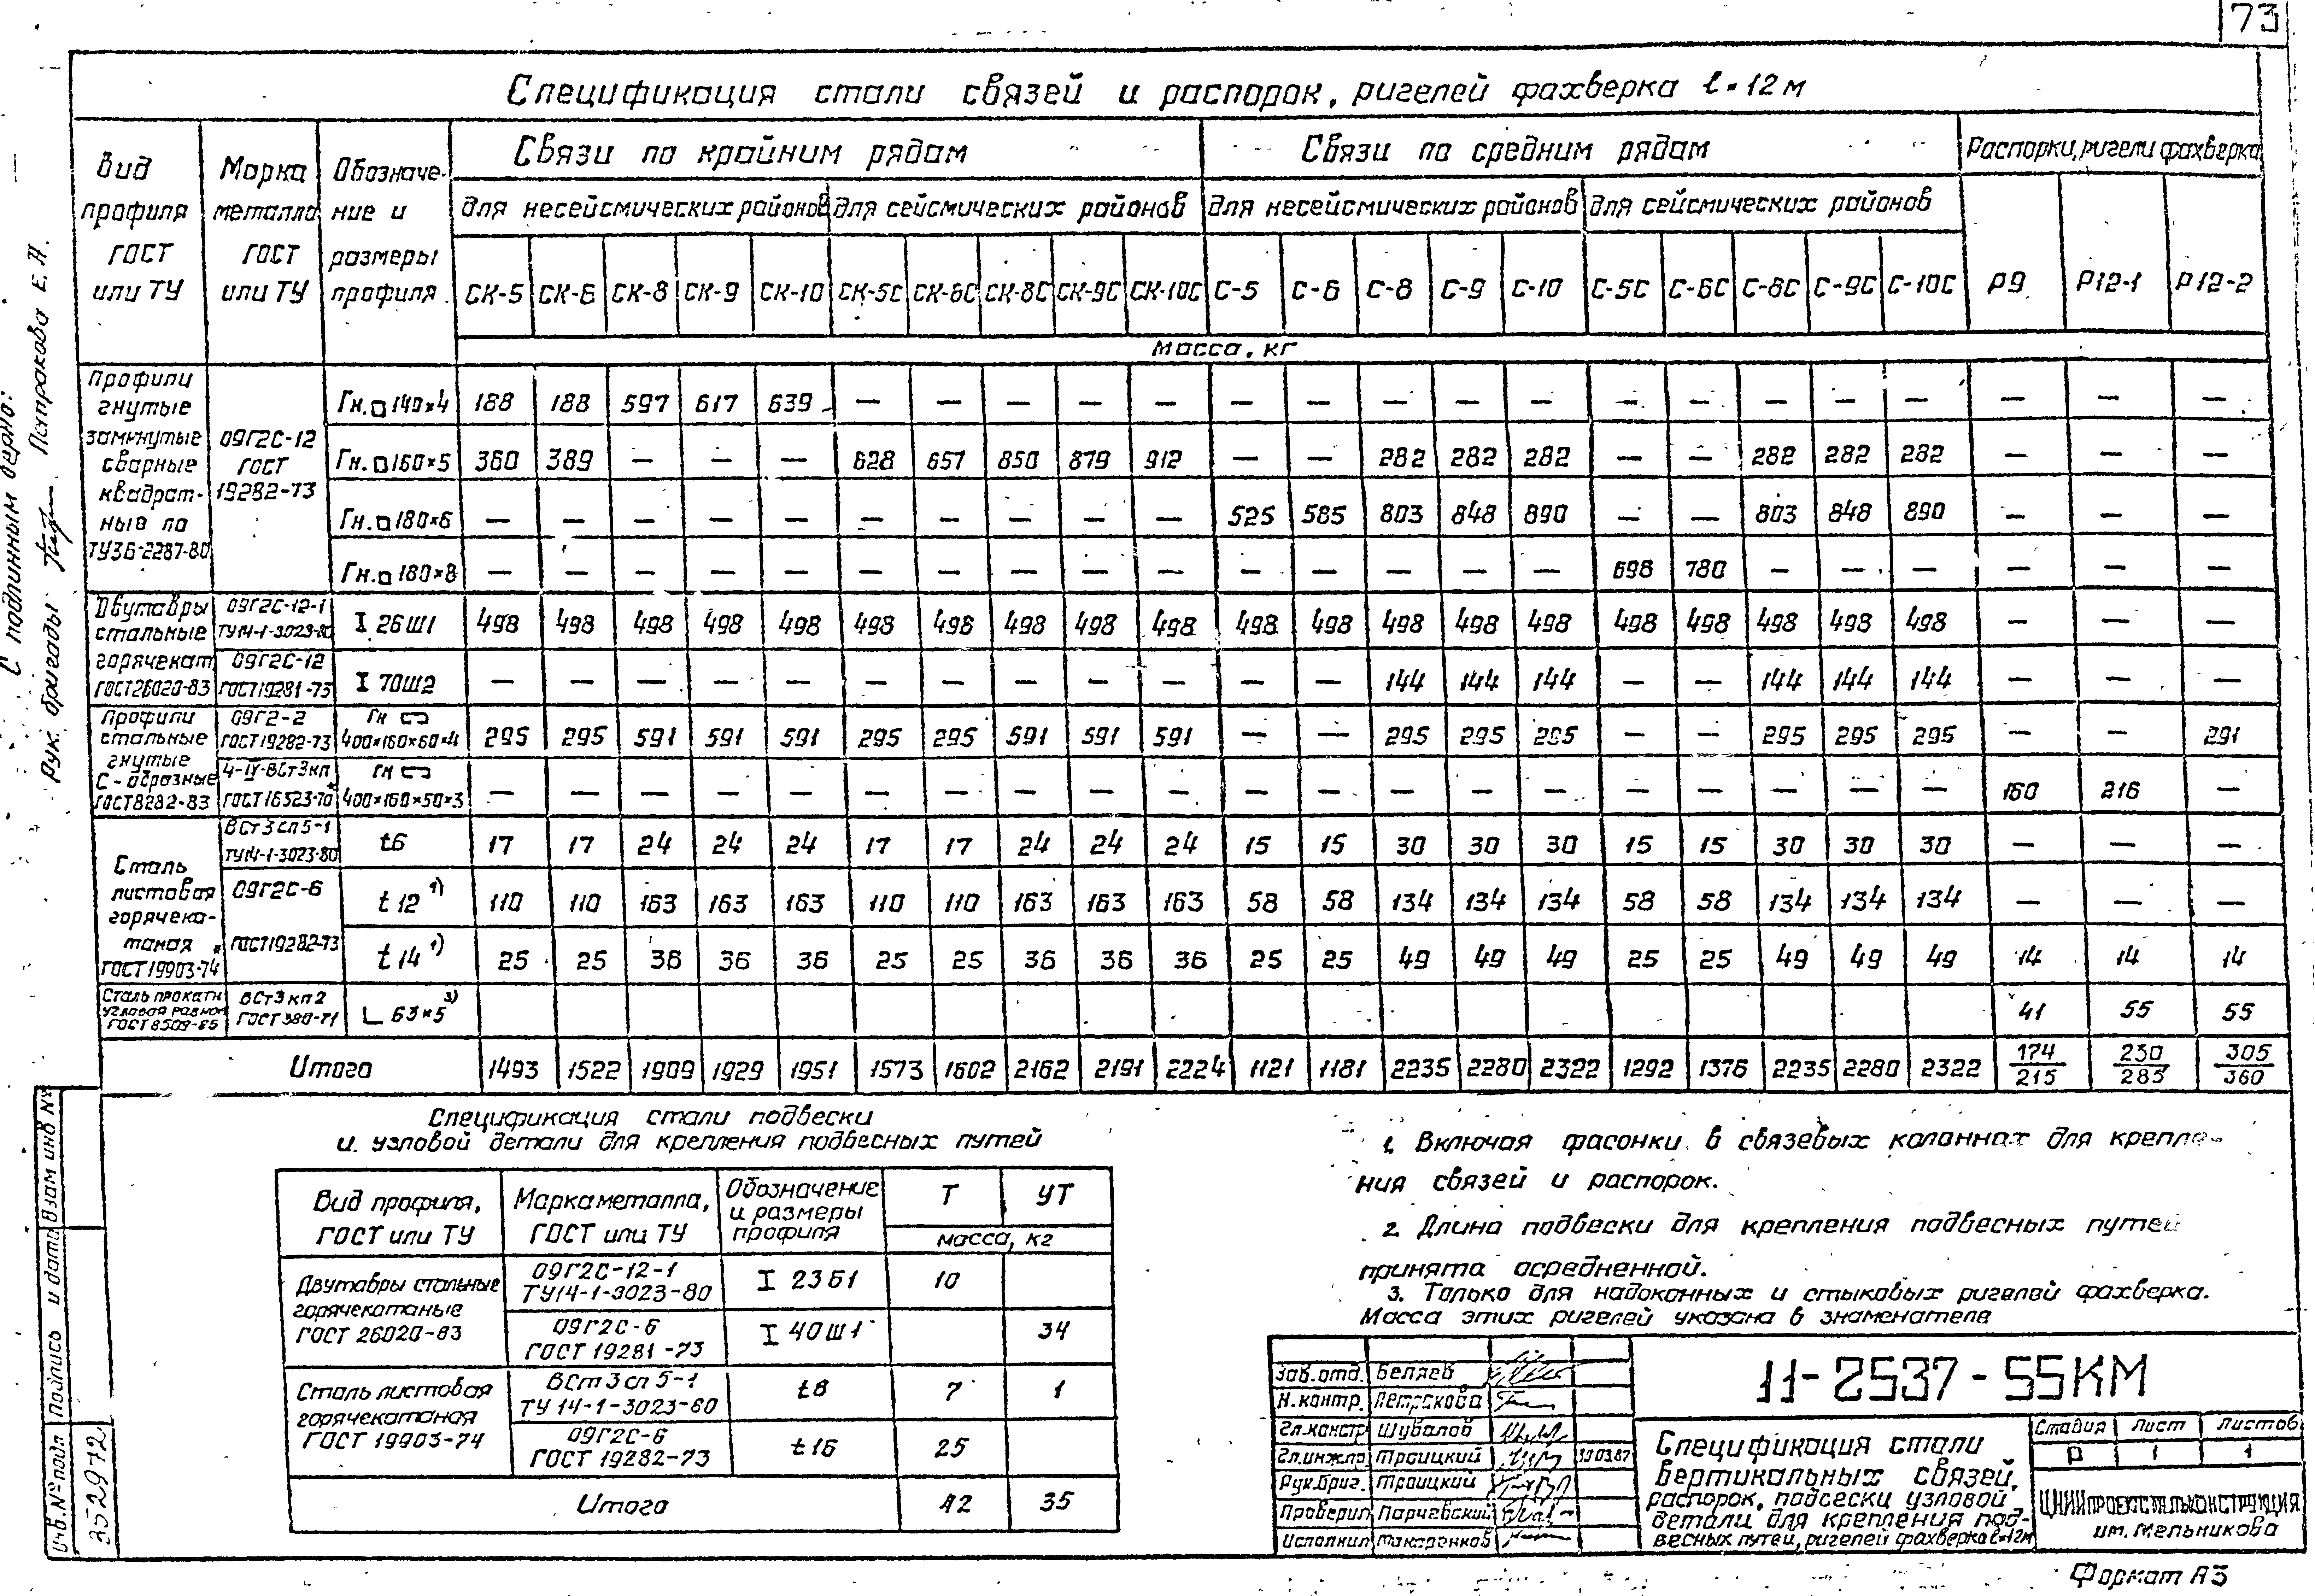 73
Спецификация стали связей и распорок, ригелей фахверка ℓ=12м
Вид профиля ГОСТ или ТУ | Марка металла ГОСТ или ТУ | Обозначение и размеры профиля | Связи по крайним рядам | Связи по средним рядам | Распорки, ригели фахверка
для несейсмических районов | для сейсмических районов | для несейсмических районов | для сейсмических районов
СК-5 СК-6 СК-8 СК-9 СК-10 СК-5С СК-6С СК-8С СК-9С СК-10С С-5 С-6 С-8 С-9 С-10 С-5С С-6С С-8С С-9С С-10С Р9 Р12-1 Р12-2
Масса, кг
Профили гнутые замкнутые сварные квадратные по ТУ36-2287-80 | 09Г2С-12 ГОСТ 19282-73
Гн.□140×4 188 188 597 617 639 — — — — — — — — — — — — — — — — — —
Гн.□160×5 360 389 — — — 628 657 850 879 912 — — 282 282 282 — — 282 282 282 — — —
Гн.□180×6 — — — — — — — — — — 525 585 803 848 890 — — 803 848 890 — — —
Гн.□180×8 — — — — — — — — — — — — — — — 696 780 — — — — — —
Двутавры стальные горячекат. ГОСТ26020-83
09Г2С-12-1 ТУ14-1-3023-80 I 26Ш1 498 498 498 498 498 498 498 498 498 498 498 498 498 498 498 498 498 498 498 498 — — —
09Г2С-12 ГОСТ19281-73 I 70Ш2 — — — — — — — — — — — — 144 144 144 — — 144 144 144 — — —
Профили стальные гнутые С-образные ГОСТ8282-83
09Г2-2 ГОСТ19282-73 Гн ⊏⊐ 400×160×60×4 295 295 591 591 591 295 295 591 591 591 — — 295 295 295 — — 295 295 295 — — 291
4-IV-ВСт3кп ГОСТ16523-70* Гн ⊏⊐ 400×160×50×3 — — — — — — — — — — — — — — — — — — — — 160 216 —
Сталь листовая горячекатаная ГОСТ19903-74*
ВСт3сп5-1 ТУ14-1-3023-80 t6 17 17 24 24 24 17 17 24 24 24 15 15 30 30 30 15 15 30 30 30 — — —
09Г2С-6 ГОСТ19282-73
t12 1) 110 110 163 163 163 110 110 163 163 163 58 58 134 134 134 58 58 134 134 134 — — —
t14 1) 25 25 36 36 36 25 25 36 36 36 25 25 49 49 49 25 25 49 49 49 14 14 14
Сталь прокатн угловая равноп ГОСТ8509-85 | ВСт3кп2 ГОСТ380-71 | ∟63×5 3) 41 55 55
Итого 1493 1522 1909 1929 1951 1573 1602 2162 2191 2224 1121 1181 2235 2280 2322 1292 1376 2235 2280 2322 174/215 230/285 305/360
Спецификация стали подвески
и узловой детали для крепления подвесных путей
Вид профиля, ГОСТ или ТУ | Марка металла, ГОСТ или ТУ | Обозначение и размеры профиля | Т | УТ
масса, кг
Двутавры стальные горячекатаные ГОСТ 26020-83
09Г2С-12-1 ТУ14-1-3023-80 I 23Б1 10
09Г2С-6 ГОСТ 19281-73 I 40Ш1 34
Сталь листовая горячекатаная ГОСТ 19903-74
ВСт3сп5-1 ТУ 14-1-3023-80 t8 7 1
09Г2С-6 ГОСТ 19282-73 t16 25
Итого 42 35
1. Включая фасонки в связевых колоннах для крепле-
ния связей и распорок.
2. Длина подвески для крепления подвесных путей
принята осредненной.
3. Только для надоконных и стыковых ригелей фахверка.
Масса этих ригелей указана в знаменателе
Зав.отд. Беляев
Н.контр. Петракова
Гл.констр Шувалов
Гл.инж.пр Троицкий 30.03.87
Рук.бриг. Троицкий
Проверил Парчевский
Исполнил
11-2537-55КМ
Спецификация стали
вертикальных связей,
распорок, подвески узловой
детали для крепления под-
весных путей, ригелей фахверка ℓ=12м
Стадия Лист Листов
Р 1 1
ЦНИИПРОЕКТСТАЛЬКОНСТРУКЦИЯ
им. Мельникова
Формат А3
С подлинным верно:
Рук. бригады Петракова Е.А.
Инв.№ подл Подпись и дата Взам инв №
352972